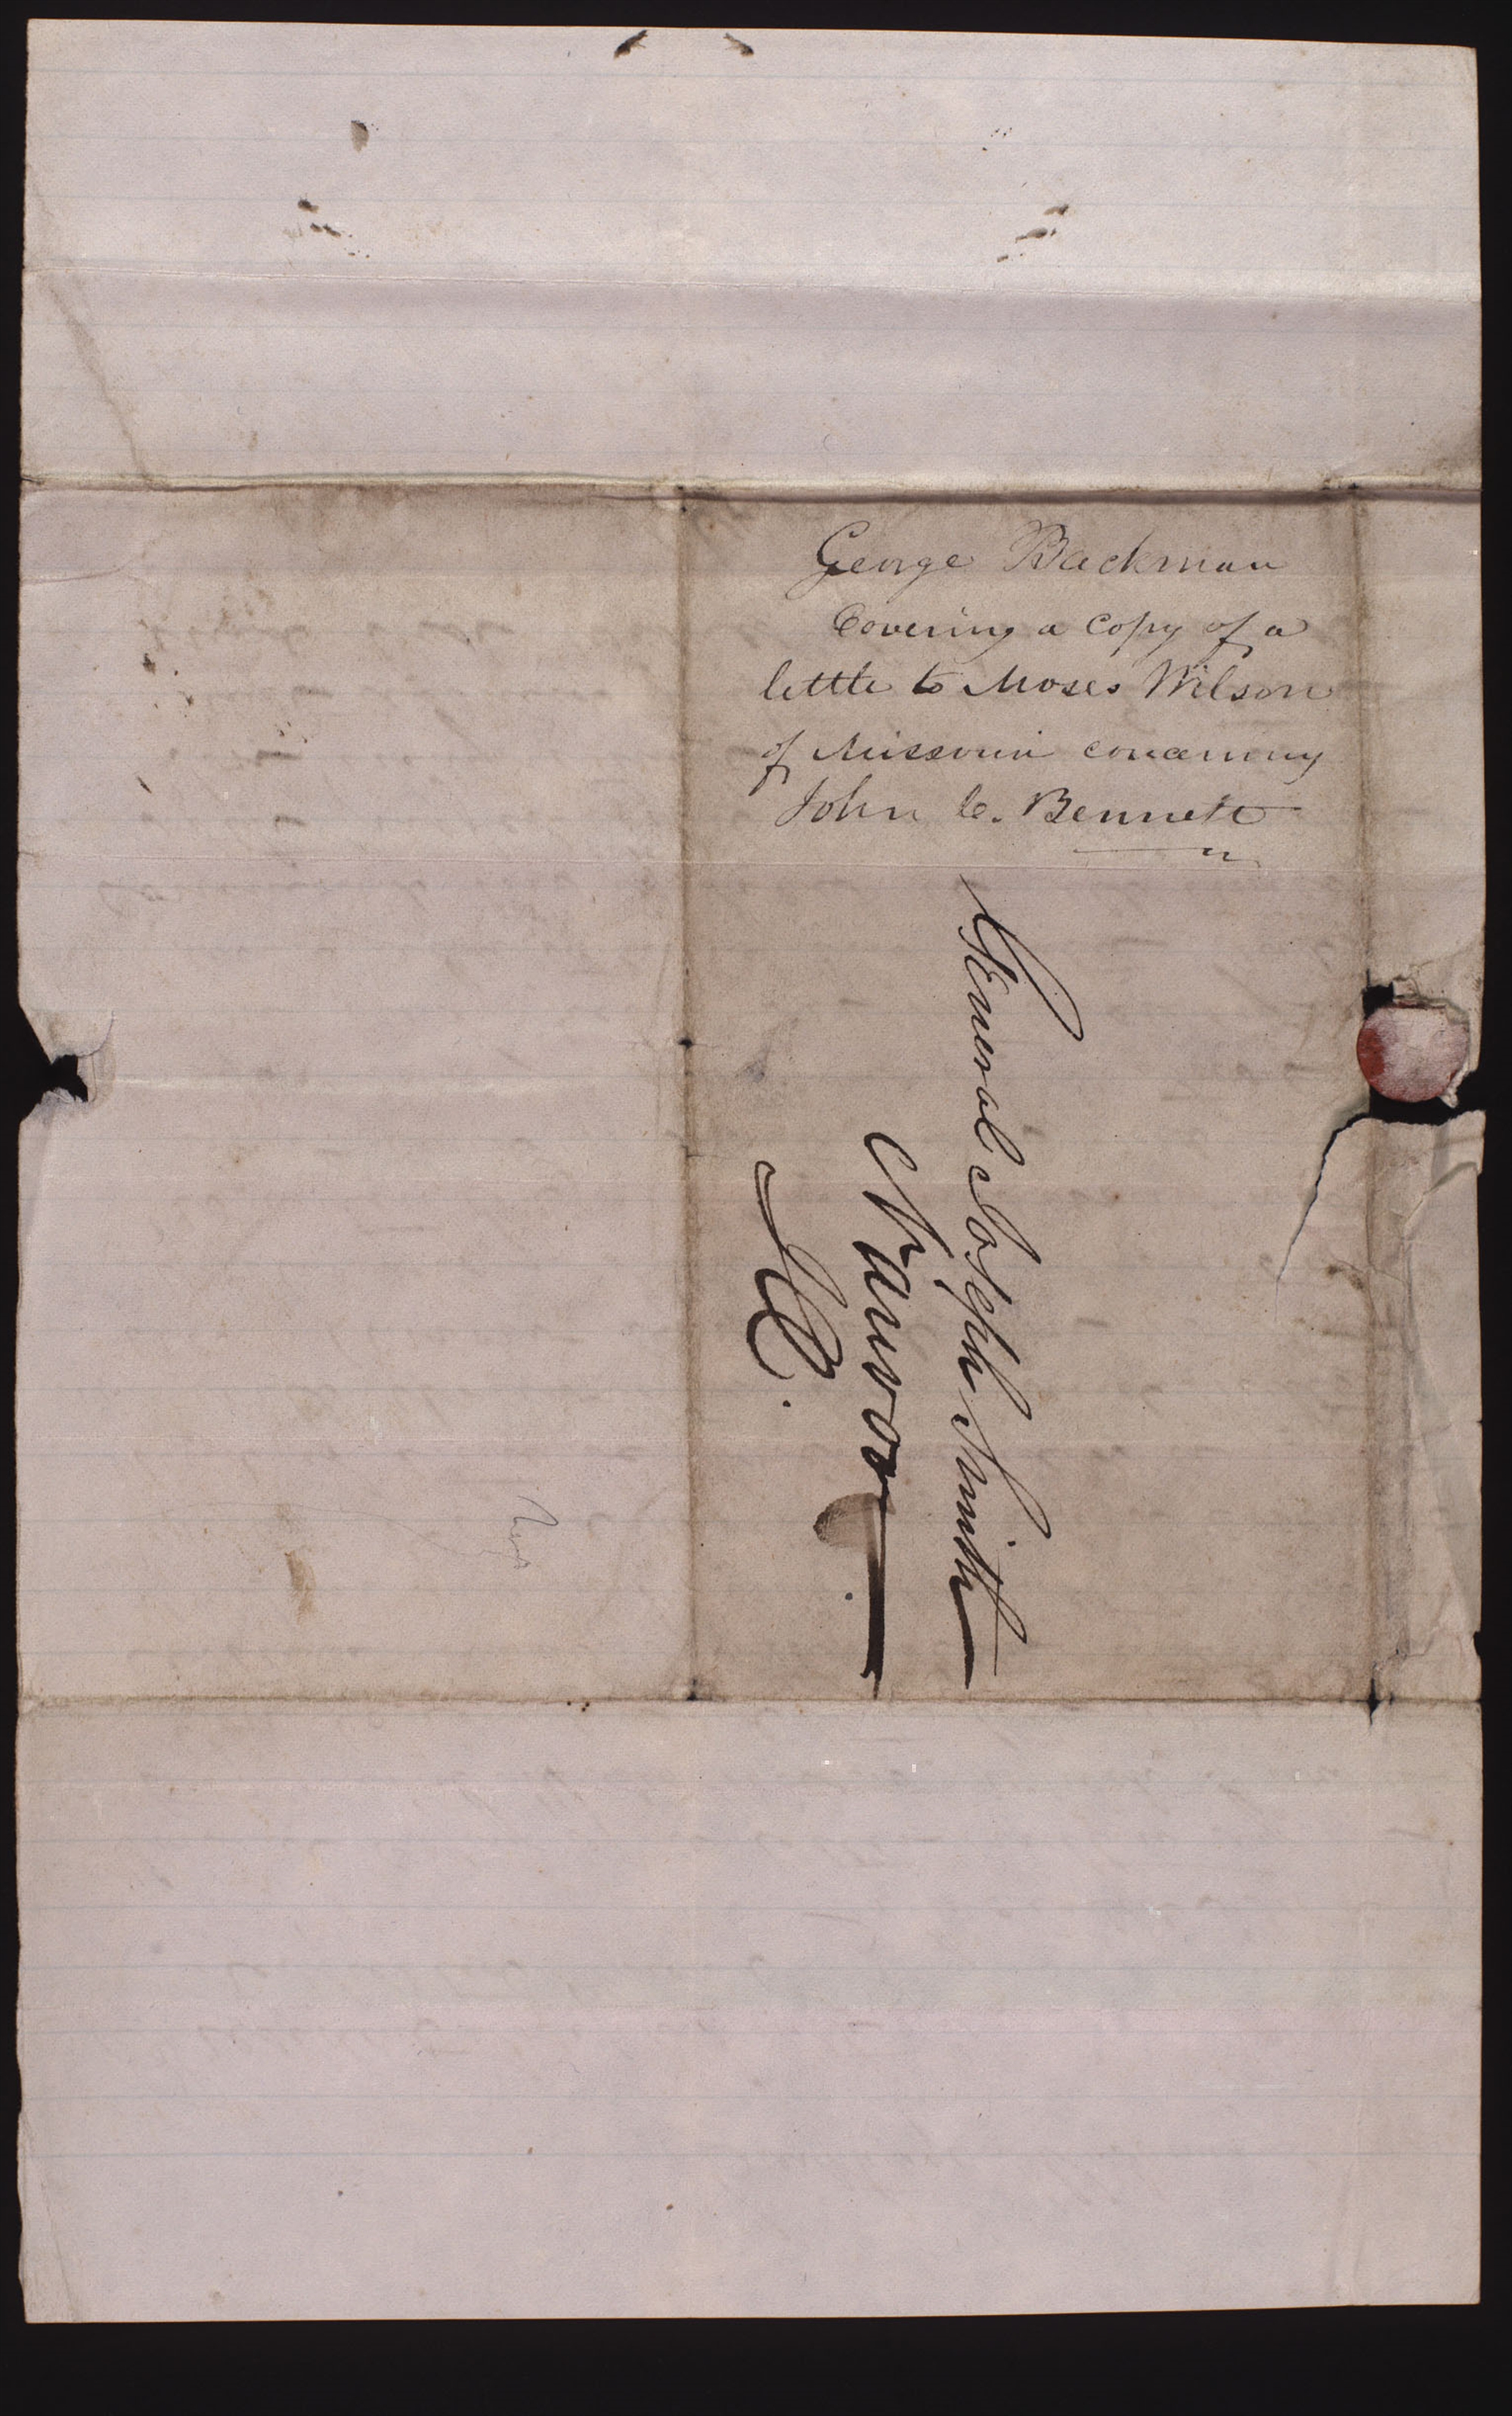 George Backman
Covering a copy of a
lettte to Moses Wilson
of Missouri concerning
John C. Bennett
General Joseph Smith
Nauvoo
Ill.